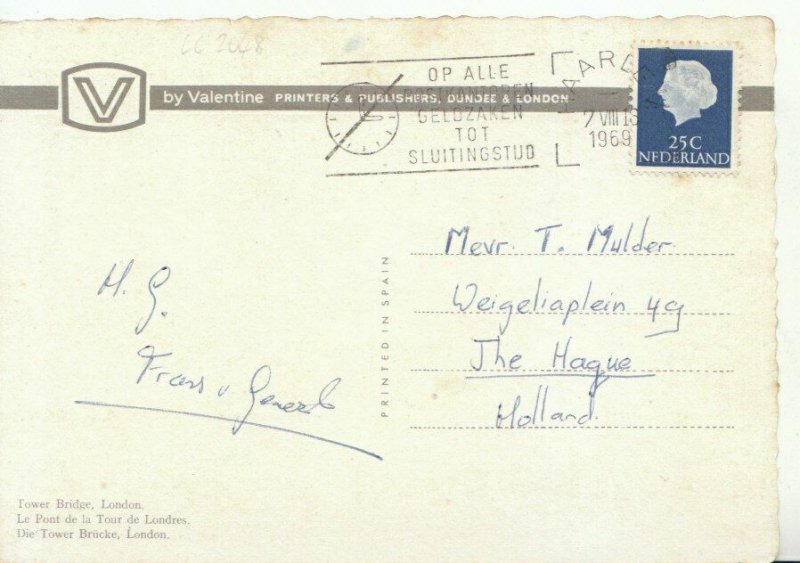 CC 2048
V
by Valentine PRINTERS & PUBLISHERS, DUNDEE & LONDON
OP ALLE
POSTKANTOREN
GELDZAKEN
TOT
SLUITINGSTIJD
7 VIII 19
1969
25C
NEDERLAND
Mevr. T. Mulder
Weigeliaplein 49
The Hague
Holland.
H. G.
Frans v
PRINTED IN SPAIN
Tower Bridge, London.
Le Pont de la Tour de Londres.
Die Tower Brücke, London.